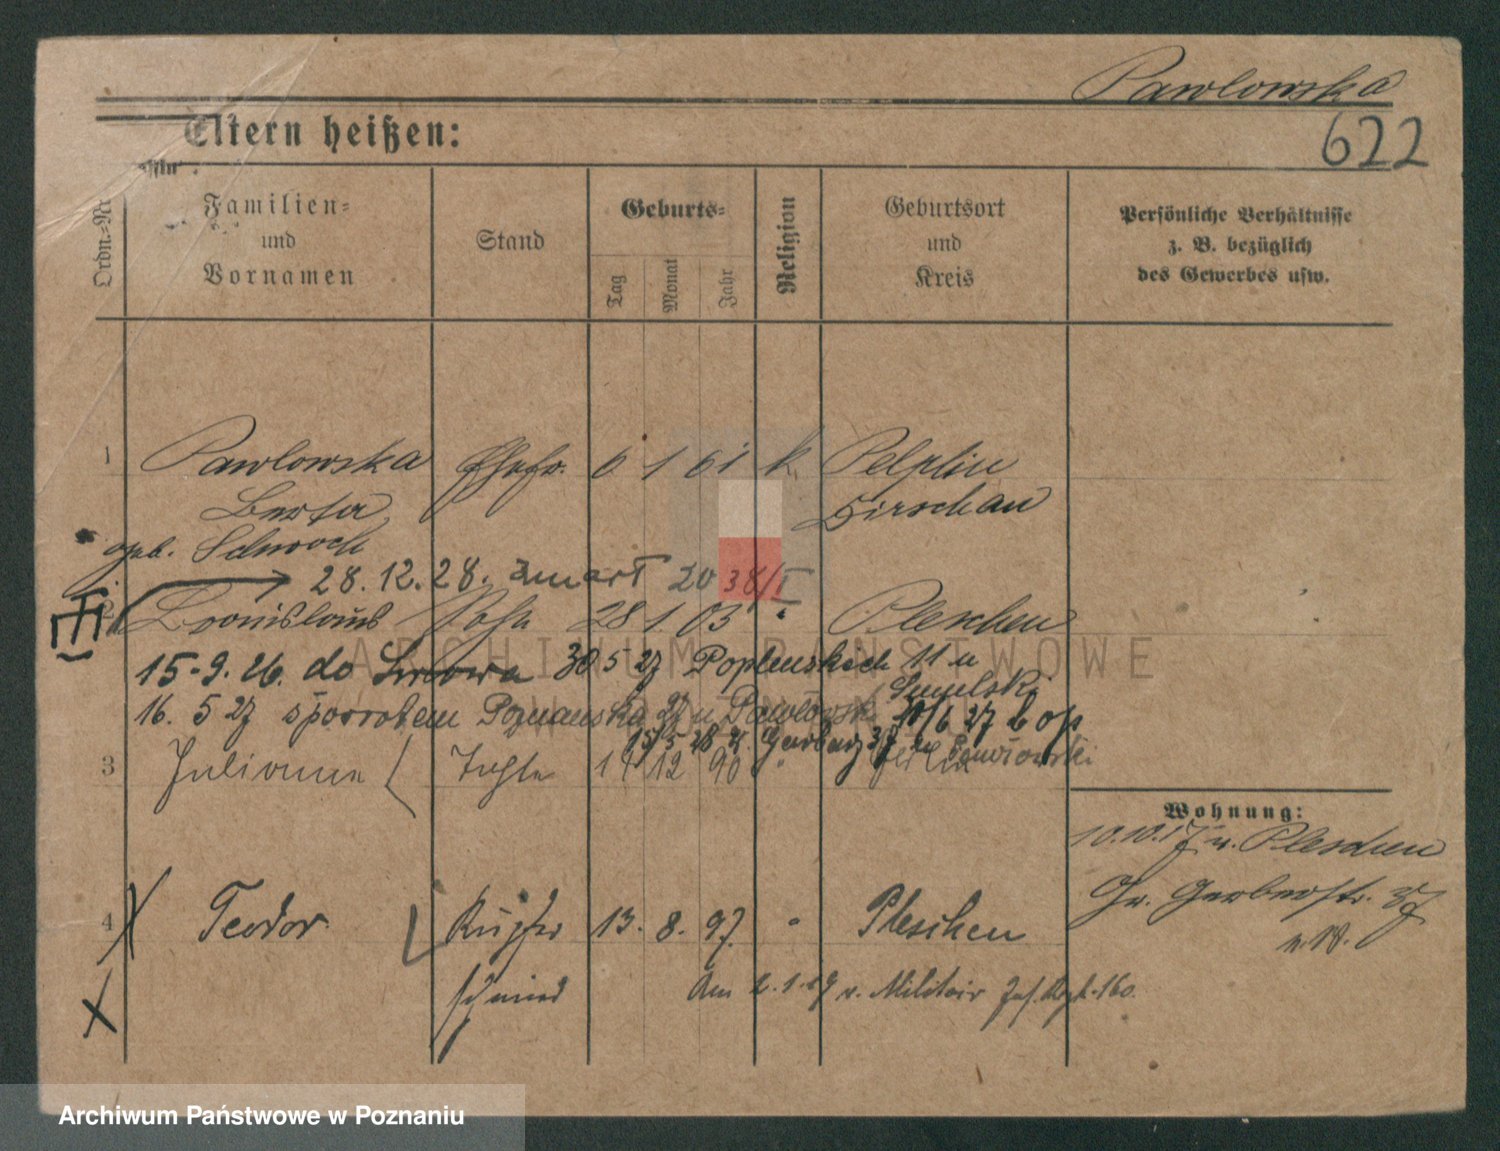 Pawlowska
622
Eltern heißen:
Ordn.-Nr.
Familien-
und
Vornamen
Stand
Geburts-
Tag
Monat
Jahr
Religion
Geburtsort
und
Kreis
Persönliche Verhältnisse
z. B. bezüglich
des Gewerbes usw.
1 Pawlowska Ehefr. 6 1 61 k Pelplin
Berta Dirschau
geb.
28.12.28. zmarł 20 38/I
2 Bronislaus Sohn 28 1 03 " Pleschen
III
15-9. 26. do Lwowa 30 5 27 11 u
16. 5 27 z powrotem Poznańska 27 u Pawłowsk 10/6 27
15/5 28 Garbary 37 u Pawłowski
3 Julianna Tochter 14 12 90 "
Wohnung:
10.10.17 v. Pleschen
Gr. Gerberstr. 37
4 Teodor Kupfer 13. 8. 97 " Pleschen
schmied
Am 2.1.19 v. Militair Inf. Regt. 160.
ARCHIWUM PAŃSTWOWE
W POZNANIU
Archiwum Państwowe w Poznaniu